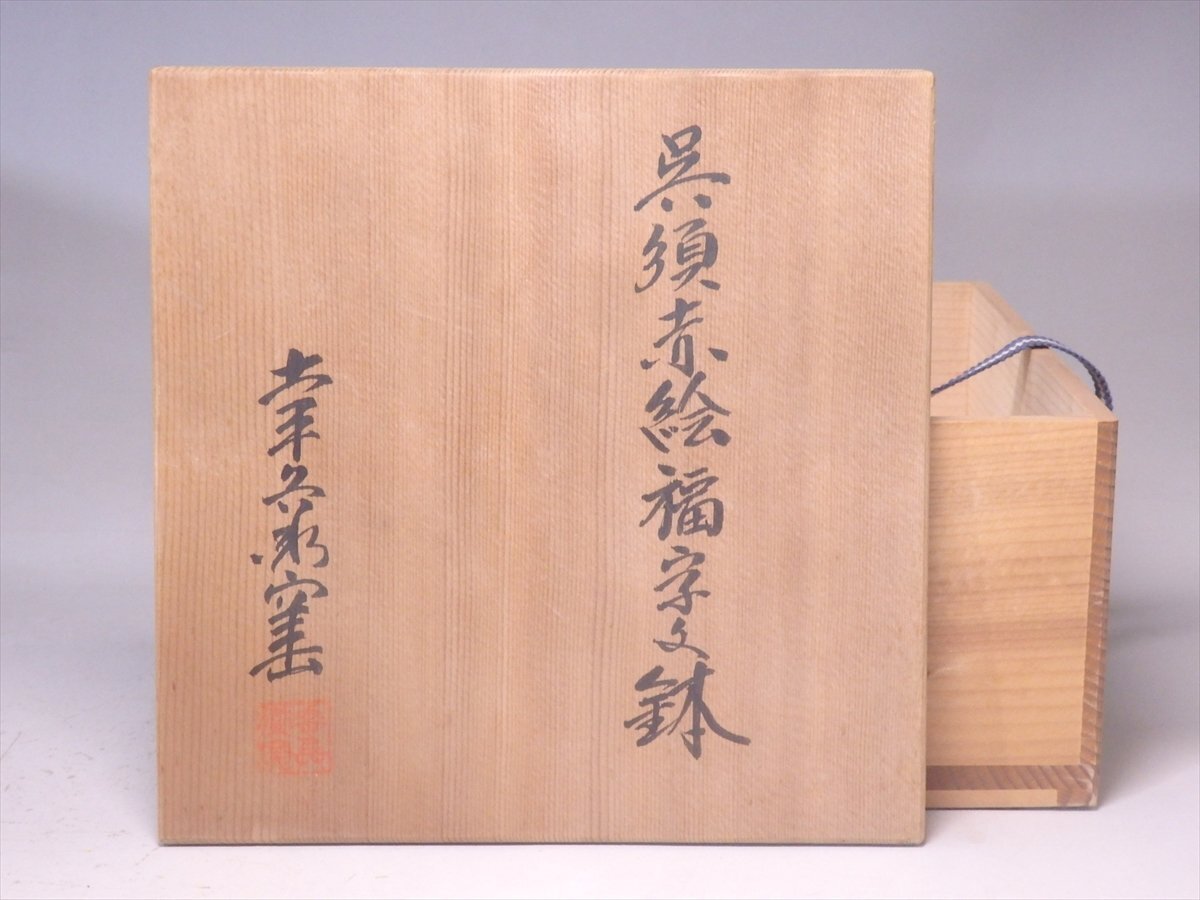 呉須赤絵福字文鉢
幸兵衛窯